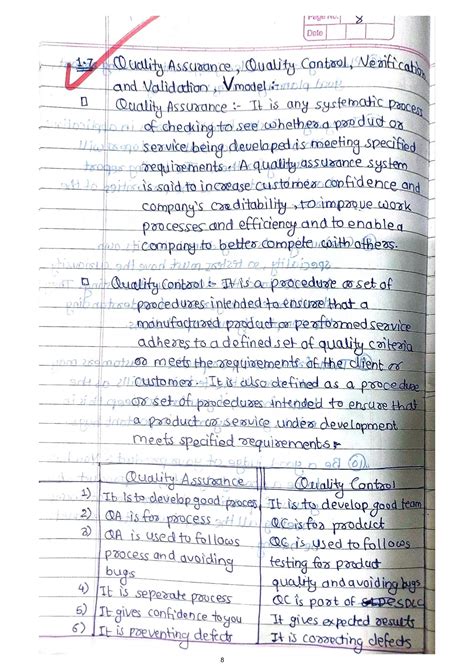 Page No. 8
Date
1.7 Quality Assurance, Quality Control, Verification
and Validation Vmodel :-
Quality Assurance :- It is any systematic process
of checking to see whether a product or
service being developed is meeting specified
requirements. A quality assurance system
is said to increase customer confidence and
company's creditability, to improve work
processes and efficiency and to enable a
company to better compete with others.
Quality Control :- It is a procedure or set of
procedures intended to ensure that a
manufactured product or performed service
adheres to a defined set of quality criteria
or meets the requirements of the client or
customer. It is also defined as a procedure
or set of procedures intended to ensure that
a product or service under development
meets specified requirements.
Quality Assurance Quality Control
1) It is to develop good process It is to develop good team
2) QA is for process QC is for product
3) QA is used to follows QC is used to follows
process and avoiding testing for product
bugs quality and avoiding bugs
4) It is seperate process QC is part of SDLC
5) It gives confidence to you It gives expected results
6) It is preventing defects It is correcting defects
8